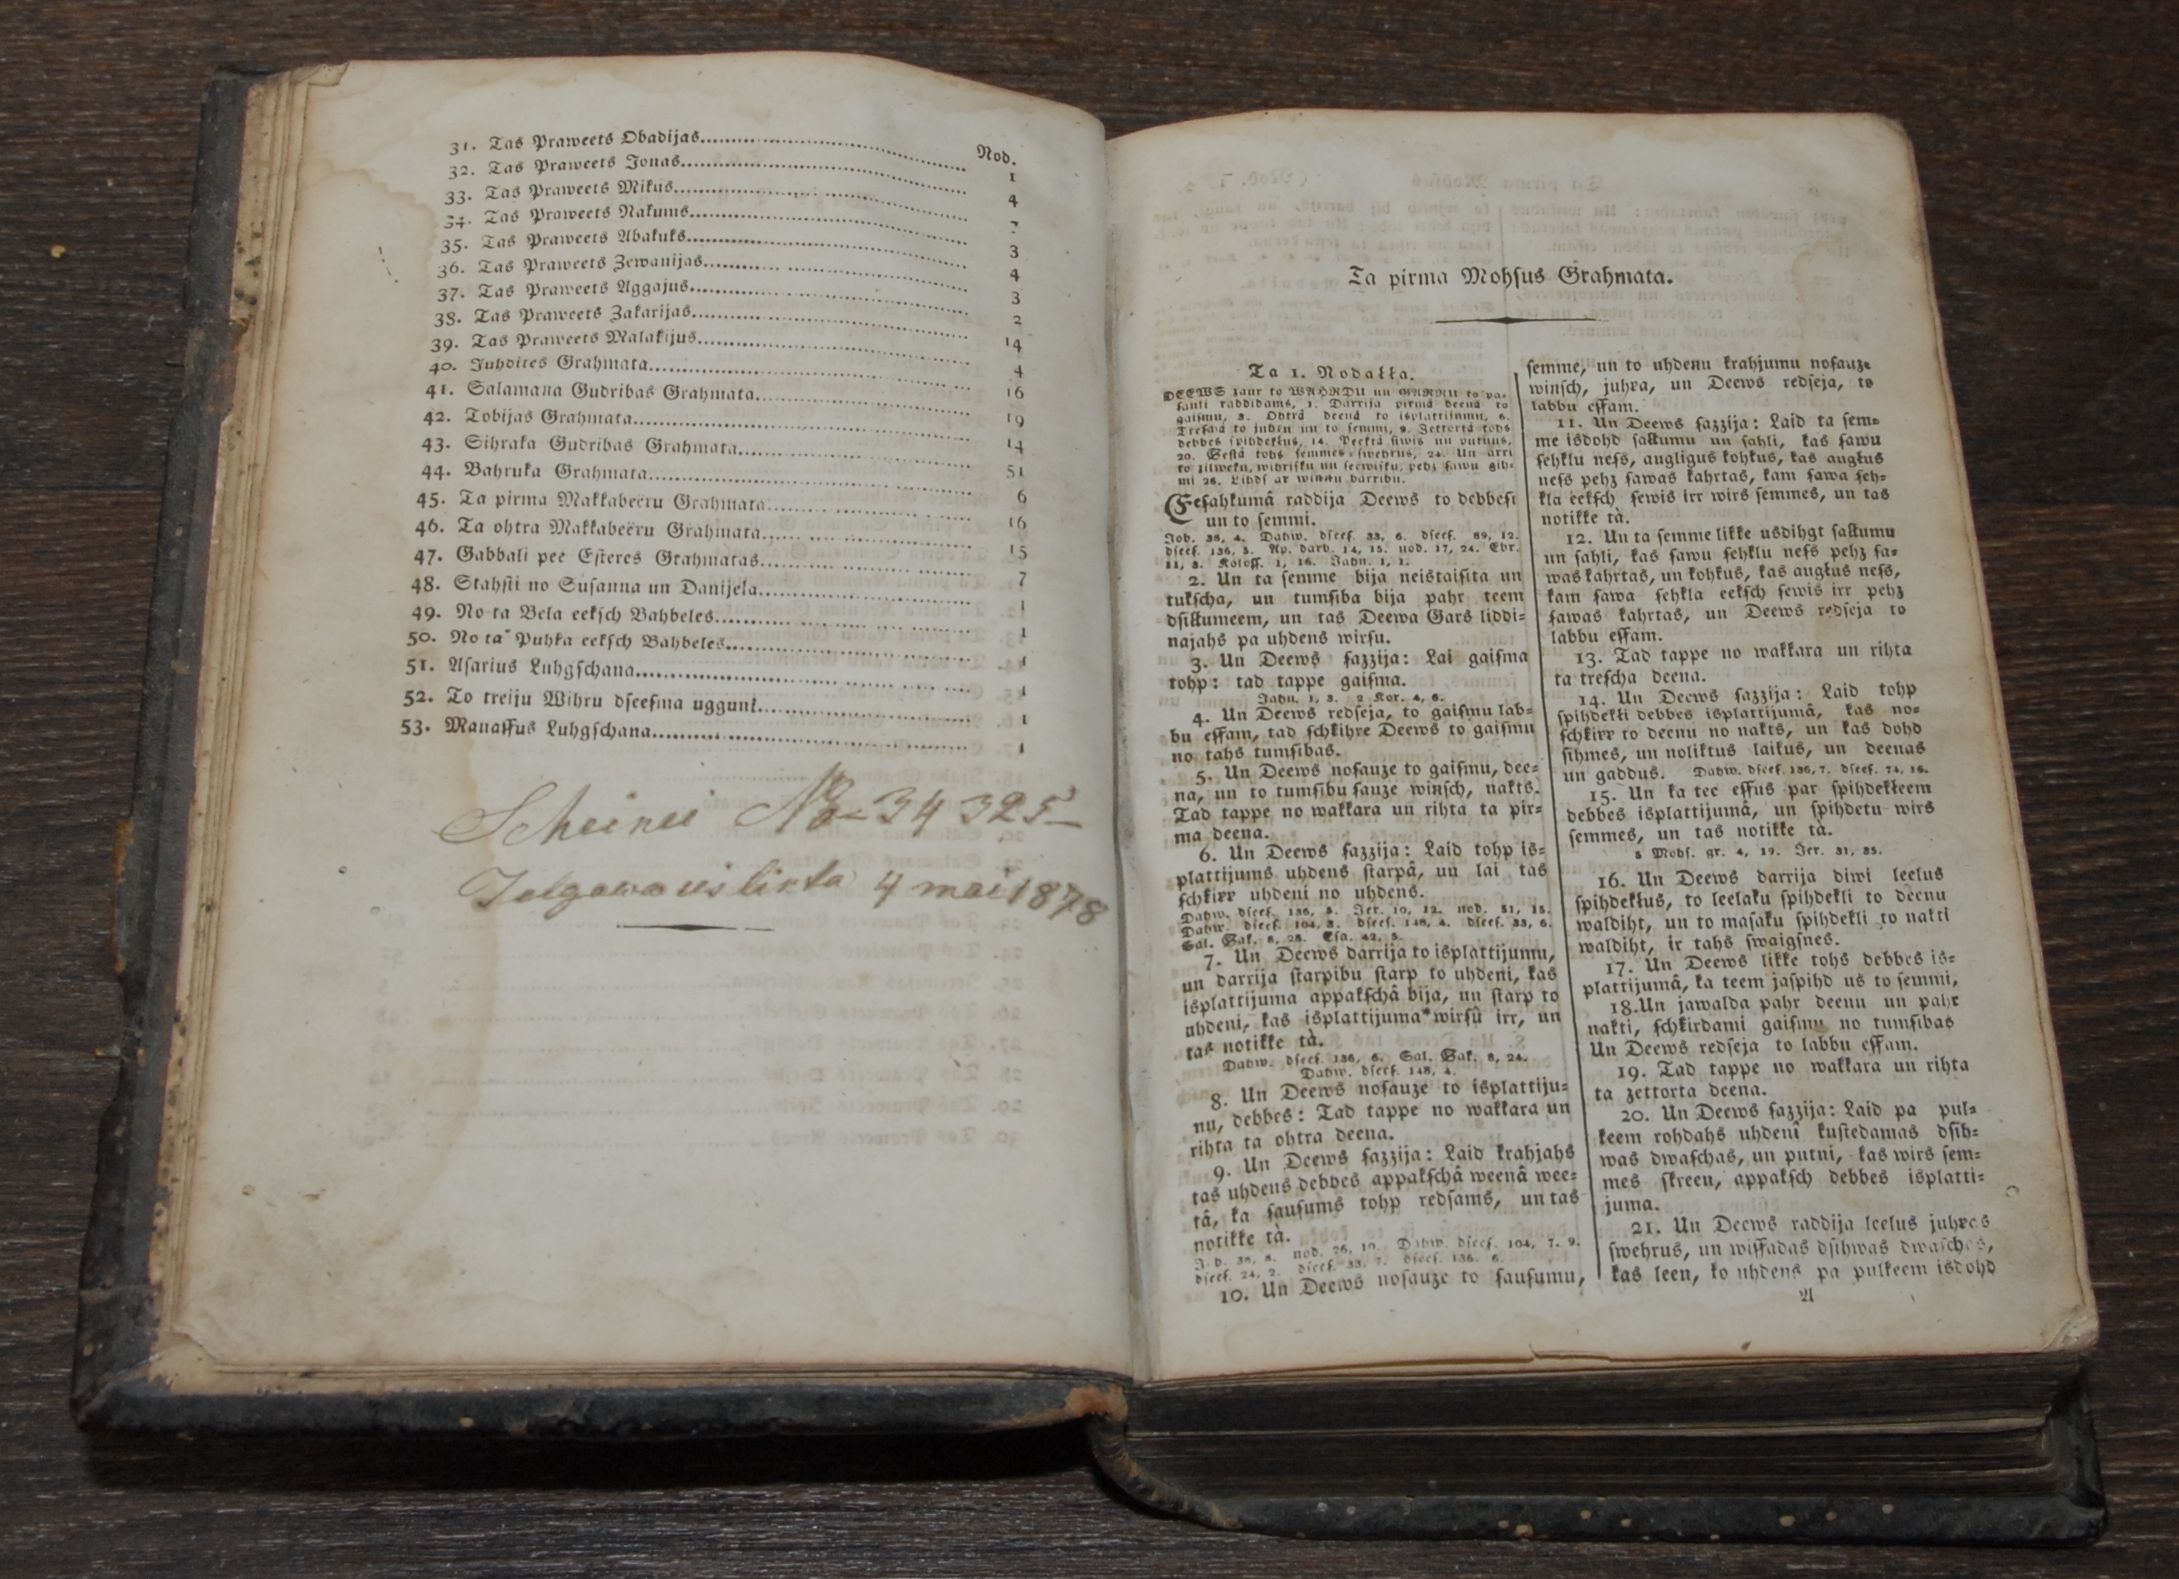 Nod.
31. Tas Praweets Obadijas 1
32. Tas Praweets Jonas 4
33. Tas Praweets Mikus 7
34. Tas Praweets Nakums 3
35. Tas Praweets Abakuks 4
36. Tas Praweets Zewanijas 3
37. Tas Praweets Aggajus 2
38. Tas Praweets Zakarijas 14
39. Tas Praweets Malakijus 4
40. Juhdites Grahmata 16
41. Salamana Gudribas Grahmata 19
42. Tobijas Grahmata 14
43. Sihraka Gudribas Grahmata 51
44. Bahruka Grahmata 6
45. Ta pirma Makkabeëru Grahmata 16
46. Ta ohtra Makkabeëru Grahmata 15
47. Gabbali pee Esteres Grahmatas 7
48. Stahsti no Susanna un Danijela 1
49. No ta Bela eekſch Bahbeles 1
50. No ta Puhka eekſch Bahbeles 1
51. Aſarius Luhgſchana 1
52. To treiju Wihru dſeeſma ugguni 1
53. Manaſſus Luhgſchana 1
No 34 325
4 mai 1878
Ta pirma Mohſus Grahmata.
Ta 1. Nodałła.
DEEWS zaur to WAHRDU un GARRU to pa-
ſauli raddidams, 1. Darrija pirmâ deenâ to
gaiſmu, 3. Ohtrâ deenâ to isplattijumu, 6.
Treſchâ to juhru un to ſemmi, 9. Zettortâ tohs
debbes ſpihdekłus, 14. Peektâ ſiwis un putnus,
20. Seſtâ tohs ſemmes ſwehrus, 24. Un arri
to zilweku, wihriſku un ſeewiſku, pehz ſawu gih-
mi 26. Lihdſ ar winnu darribu.
Eeſahkumâ raddija Deews to debbeſi
un to ſemmi.
Job. 38, 4. Dahw. dſeeſ. 33, 6. dſeeſ. 89, 12.
dſeeſ. 136, 5. Ap. darb. 14, 15. nod. 17, 24. Ebr.
11, 3. Koloſſ. 1, 16. Jahn. 1, 1.
2. Un ta ſemme bija neistaiſita un
tukſcha, un tumſiba bija pahr teem
dſiłłumeem, un tas Deewa Gars liddi-
najahs pa uhdens wirſu.
3. Un Deews ſazzija: Lai gaiſma
tohp: tad tappe gaiſma.
Jahn. 1, 3. 2 Kor. 4, 6.
4. Un Deews redſeja, to gaiſmu lab-
bu eſſam, tad ſchkihre Deews to gaiſmu
no tahs tumſibas.
5. Un Deews noſauze to gaiſmu, dee-
na, un to tumſibu ſauze winſch, nakts.
Tad tappe no wakkara un rihta ta pir-
ma deena.
6. Un Deews ſazzija: Laid tohp is-
plattijums uhdens ſtarpâ, un lai tas
ſchkirr uhdeni no uhdens.
Dahw. dſeeſ. 136, 5. Jer. 10, 12. nod. 51, 15.
Dahw. dſeeſ. 104, 3. dſeeſ. 148, 4. dſeeſ. 33, 6.
Sal. Sak. 8, 28. Eſa. 42, 5.
7. Un Deews darrija to isplattijumu,
un darrija ſtarpibu ſtarp to uhdeni, kas
isplattijuma appakſchâ bija, un ſtarp to
uhdeni, kas isplattijuma wirſû irr, un
tas notikke tà.
Dahw. dſeeſ. 136, 6. Sal. Sak. 8, 24.
Dahw. dſeeſ. 148, 4.
8. Un Deews noſauze to isplattiju-
nu, debbes: Tad tappe no wakkara un
rihta ta ohtra deena.
9. Un Deews ſazzija: Laid krahjahs
tas uhdens debbes appakſchâ weenâ wee-
tâ, ka ſauſums tohp redſams, un tas
notikke tà.
38, 8. nod. 26, 10. Dahw. dſeeſ. 104, 7. 9.
dſeeſ. 24, 2. dſeeſ. 33, 7. dſeeſ. 136, 6.
10. Un Deews noſauze to ſauſumu,
ſemme, un to uhdenu krahjumu noſauze
winſch, juhra, un Deews redſeja, to
labbu eſſam.
11. Un Deews ſazzija: Laid ta ſem-
me isdohd ſałłumu un ſahli, kas ſawu
ſehklu neſs, augligus kohkus, kas augłus
neſs pehz ſawas kahrtas, kam ſawa ſeh-
kla eekſch ſewis irr wirs ſemmes, un tas
notikke tà.
12. Un ta ſemme likke usdihgt ſałłumu
un ſahli, kas ſawu ſehklu neſs pehz ſa-
was kahrtas, un kohkus, kas augłus neſs,
kam ſawa ſehkla eekſch ſewis irr pehz
ſawas kahrtas, un Deews redſeja to
labbu eſſam.
13. Tad tappe no wakkara un rihta
ta treſcha deena.
14. Un Deews ſazzija: Laid tohp
ſpihdekłi debbes isplattijumâ, kas no-
ſchkirr to deenu no nakts, un kas dohd
ſihmes, un noliktus laikus, un deenas
un gaddus. Dahw. dſeeſ. 136, 7. dſeeſ. 74, 16.
15. Un ka tee eſſus par ſpihdekłeem
debbes isplattijumâ, un ſpihdetu wirs
ſemmes, un tas notikke tà.
5 Mohſ. gr. 4, 19. Jer. 31, 35.
16. Un Deews darrija diwi leelus
ſpihdekłus, to leelaku ſpihdekli to deenu
waldiht, un to maſaku ſpihdekli to nakti
waldiht, ir tahs ſwaigſnes.
17. Un Deews likke tohs debbes is-
plattijumâ, ka teem jaſpihd us to ſemmi,
18. Un jawalda pahr deenu un pahr
nakti, ſchkirdami gaiſmu no tumſibas
Un Deews redſeja to labbu eſſam.
19. Tad tappe no wakkara un rihta
ta zettorta deena.
20. Un Deews ſazzija: Laid pa pul-
keem rohdahs uhdenî kuſtedamas dſih-
was dwaſchas, un putni, kas wirs ſem-
mes ſkreen, appakſch debbes isplatti-
juma.
21. Un Deews raddija leelus juhras
ſwehrus, un wiſſadas dſihwas dwaſchas,
kas leen, ko uhdens pa pulkeem isdohd
A